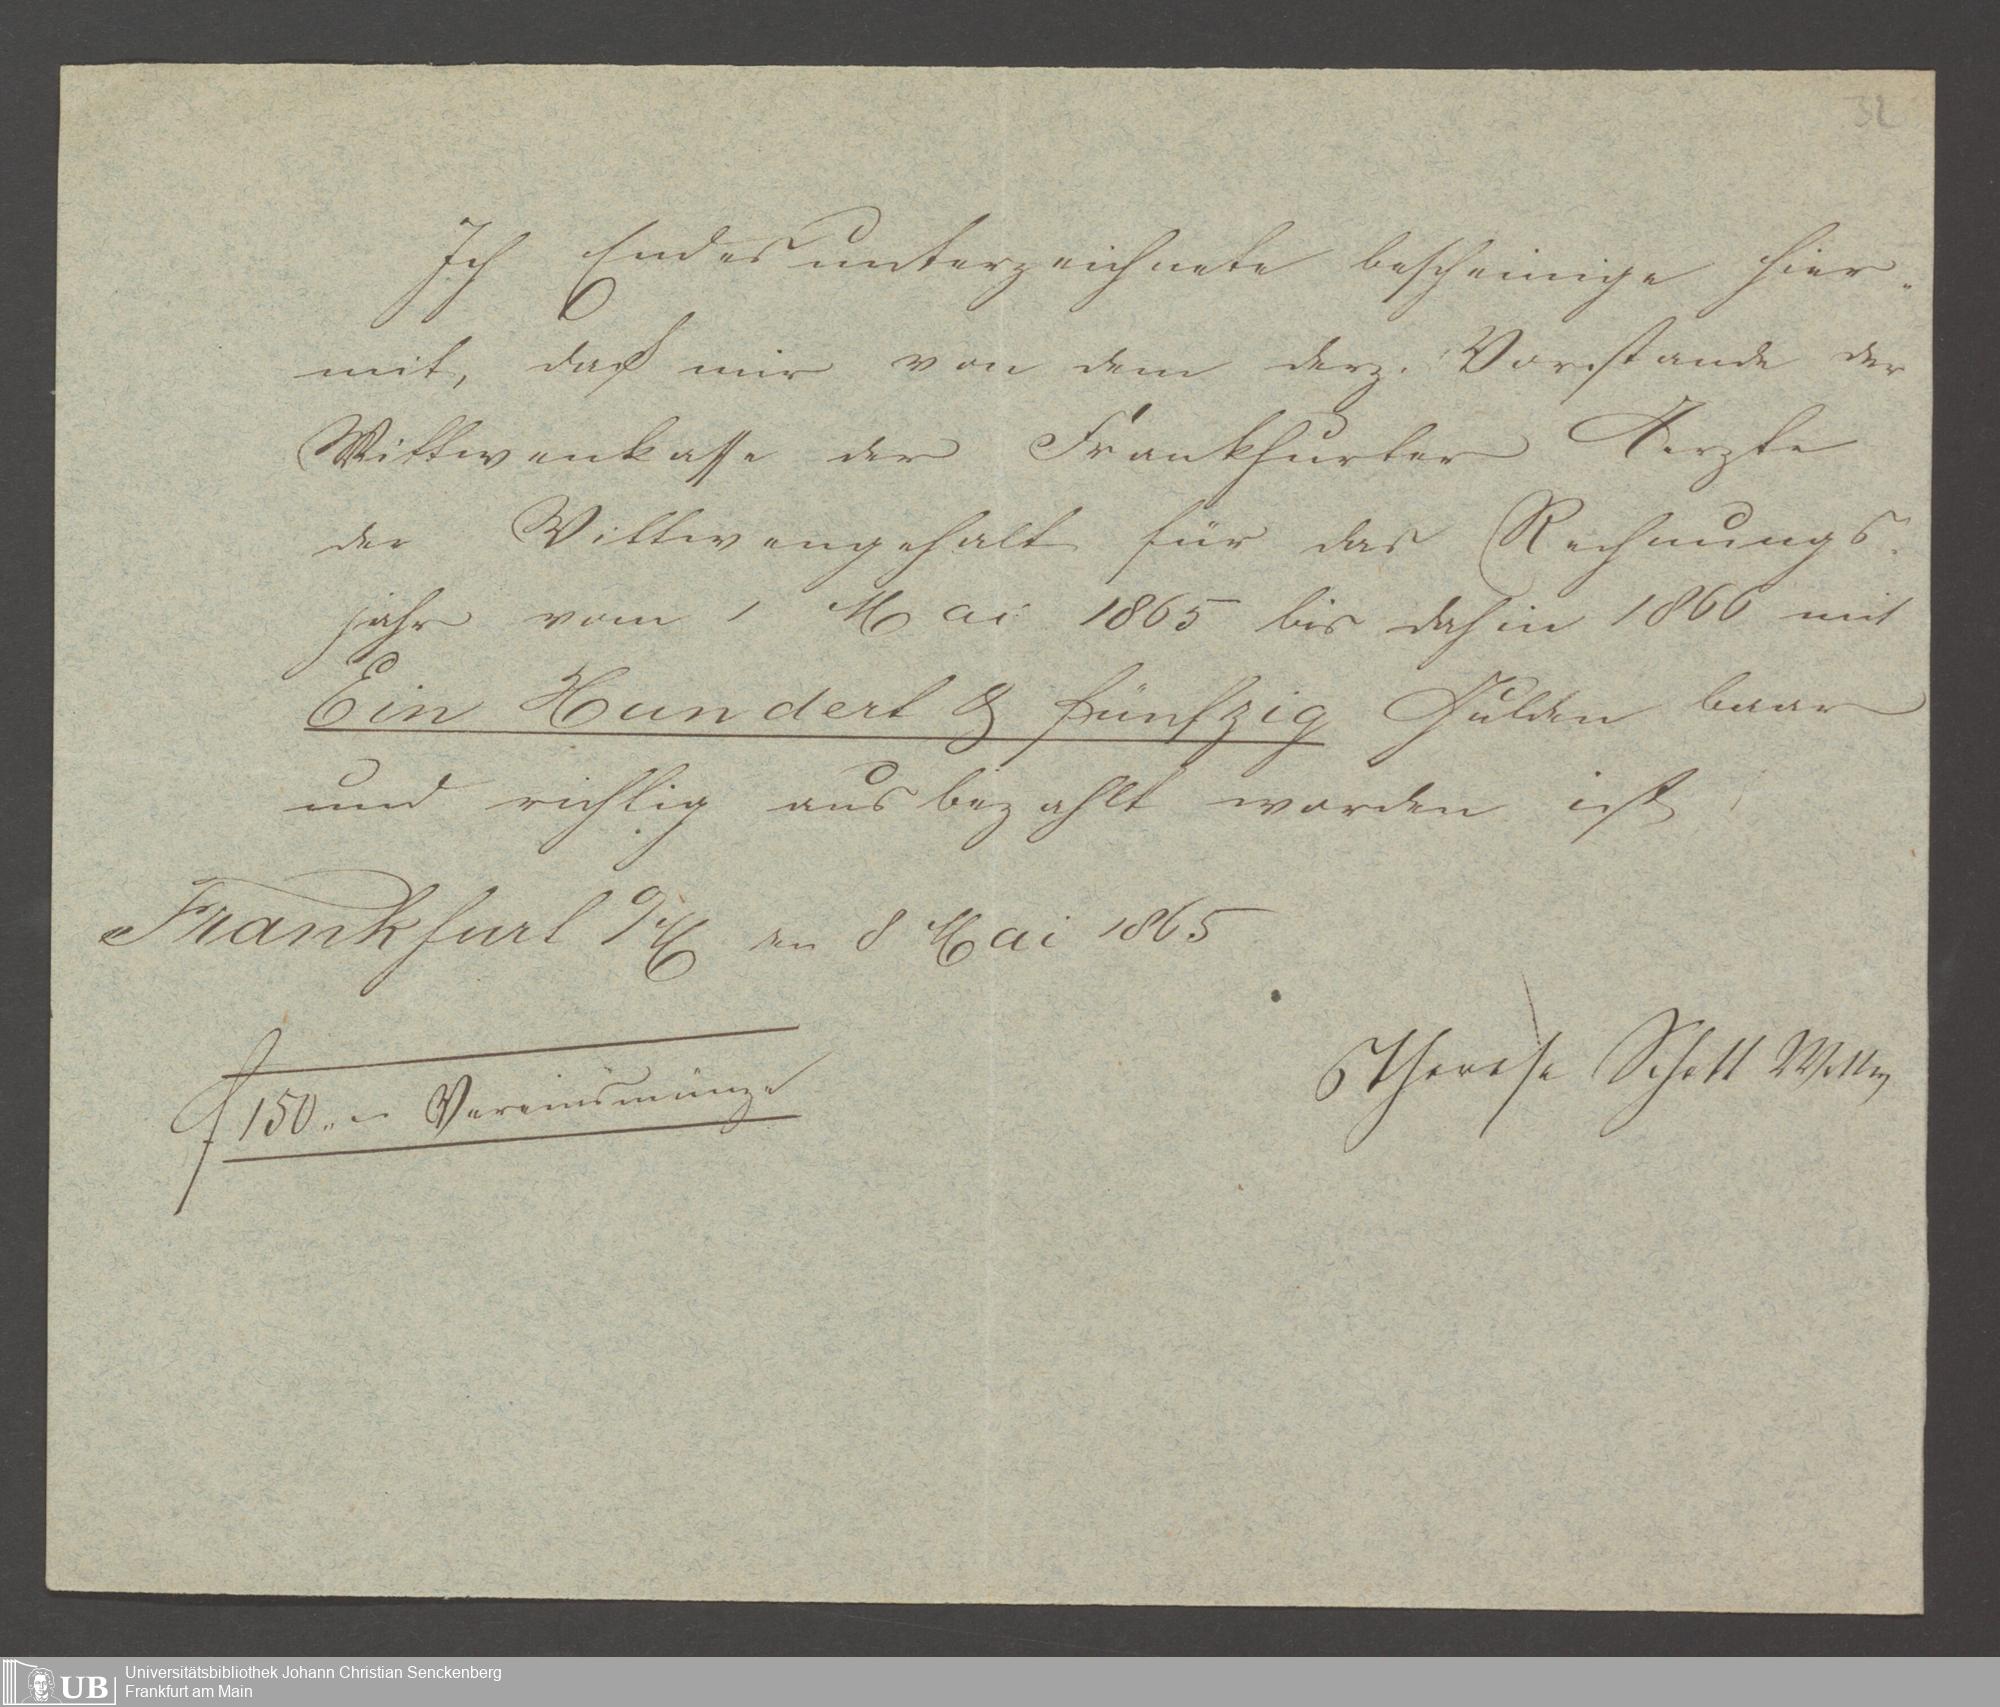 32
Ich Endesunterzeichnete bescheinige hier-
mit, daß mir von dem derz. Vorstande der
Wittwenkasse der Frankfurter Aerzte
der Wittwengehalt für das Rechnungs-
jahr vom 1 Mai 1865 bis dahin 1866 mit
Ein Hundert & fünfzig Gulden baar
und richtig ausbezahlt worden ist
Frankfurt a/M den 8 Mai 1865
f 150 „ in Vereinsmünze
Therese Schott Wittw
UB Universitätsbibliothek Johann Christian Senckenberg
Frankfurt am Main